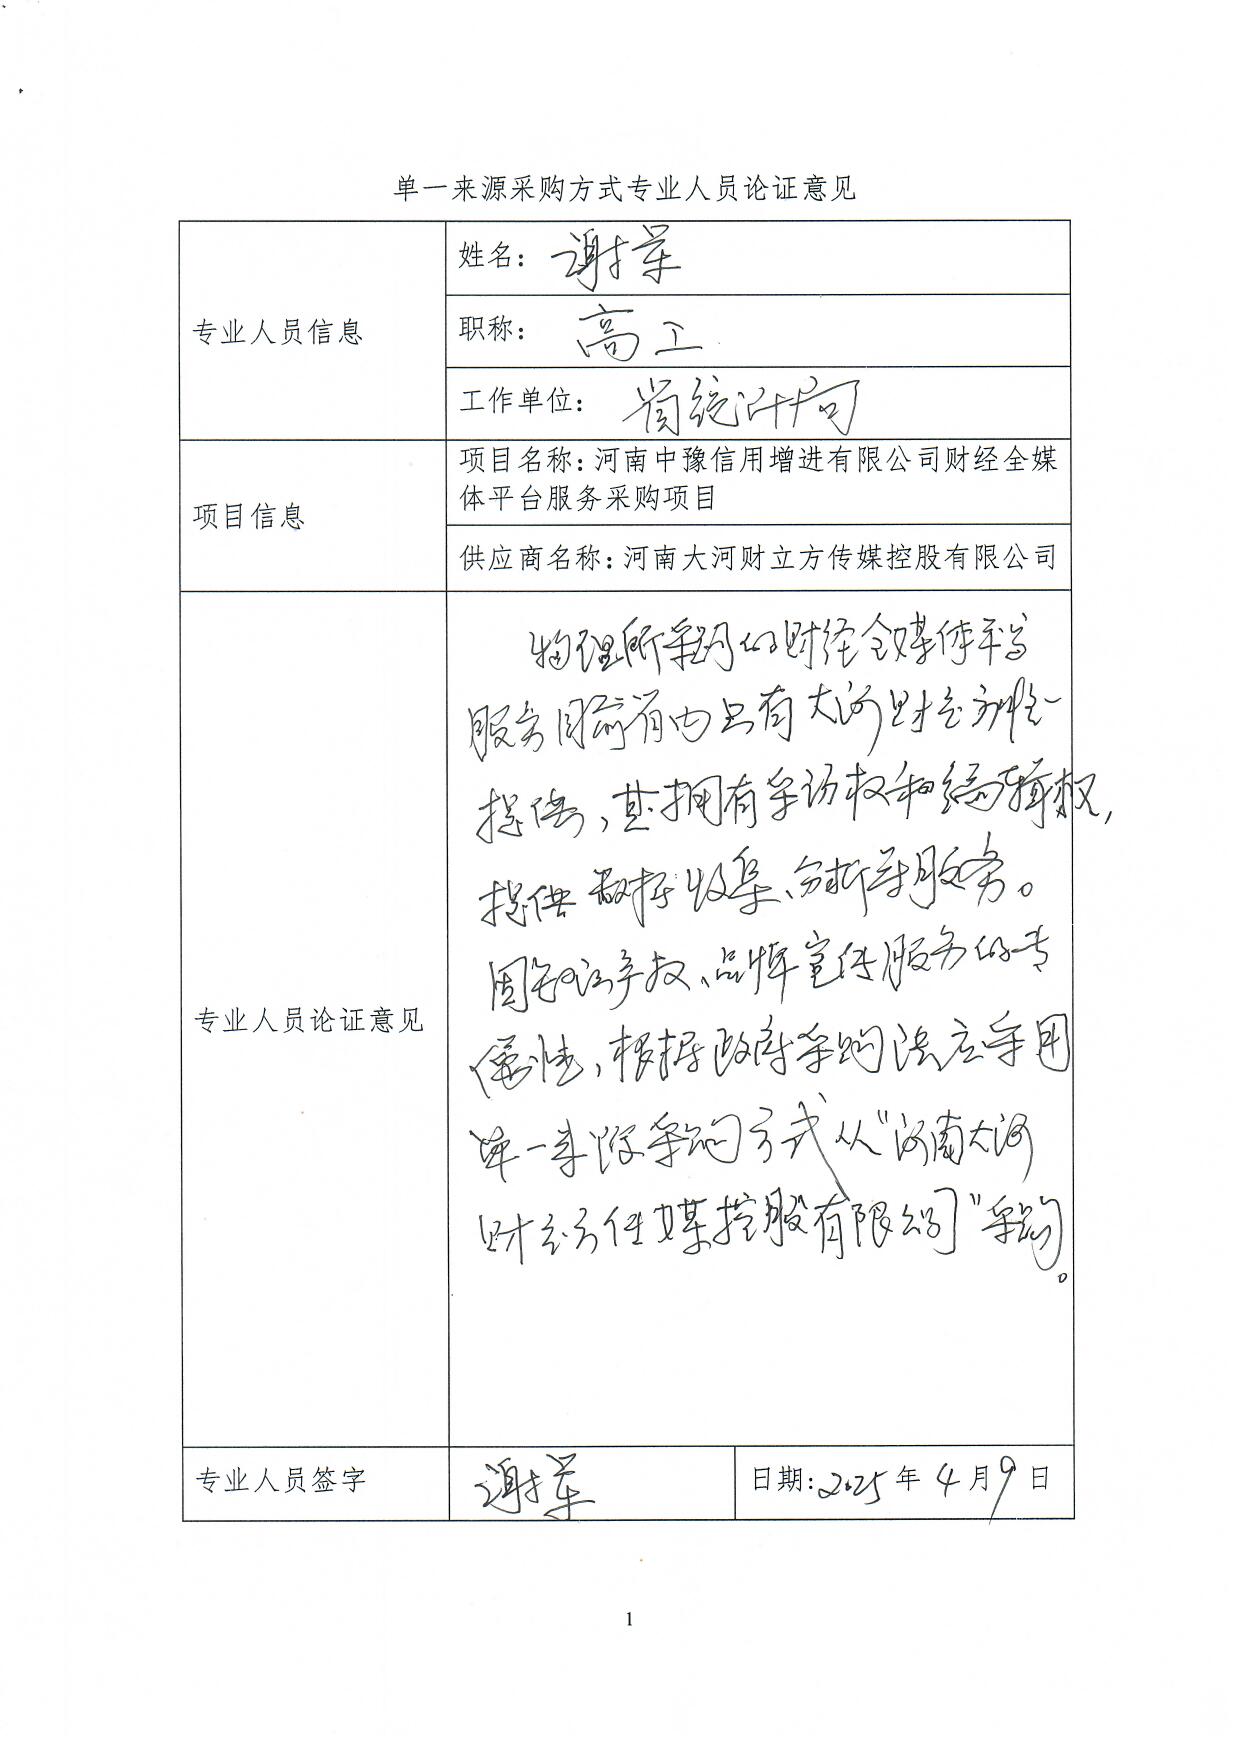 单一来源采购方式专业人员论证意见
专业人员信息
姓名：谢荣
职称：高工
工作单位：省统计局
项目信息
项目名称：河南中豫信用增进有限公司财经全媒
体平台服务采购项目
供应商名称：河南大河财立方传媒控股有限公司
专业人员论证意见
所采购的财经全媒体平台
服务目前省内只有大河财立方能
提供，其拥有采访权和编辑权，
提供数据收集、分析等服务。
因知识产权、品牌宣传服务的专
属性，根据政府采购法应采用
单一来源采购方式从“河南大河
财立方传媒控股有限公司”采购。
专业人员签字
谢荣
日期：2025年4月9日
1